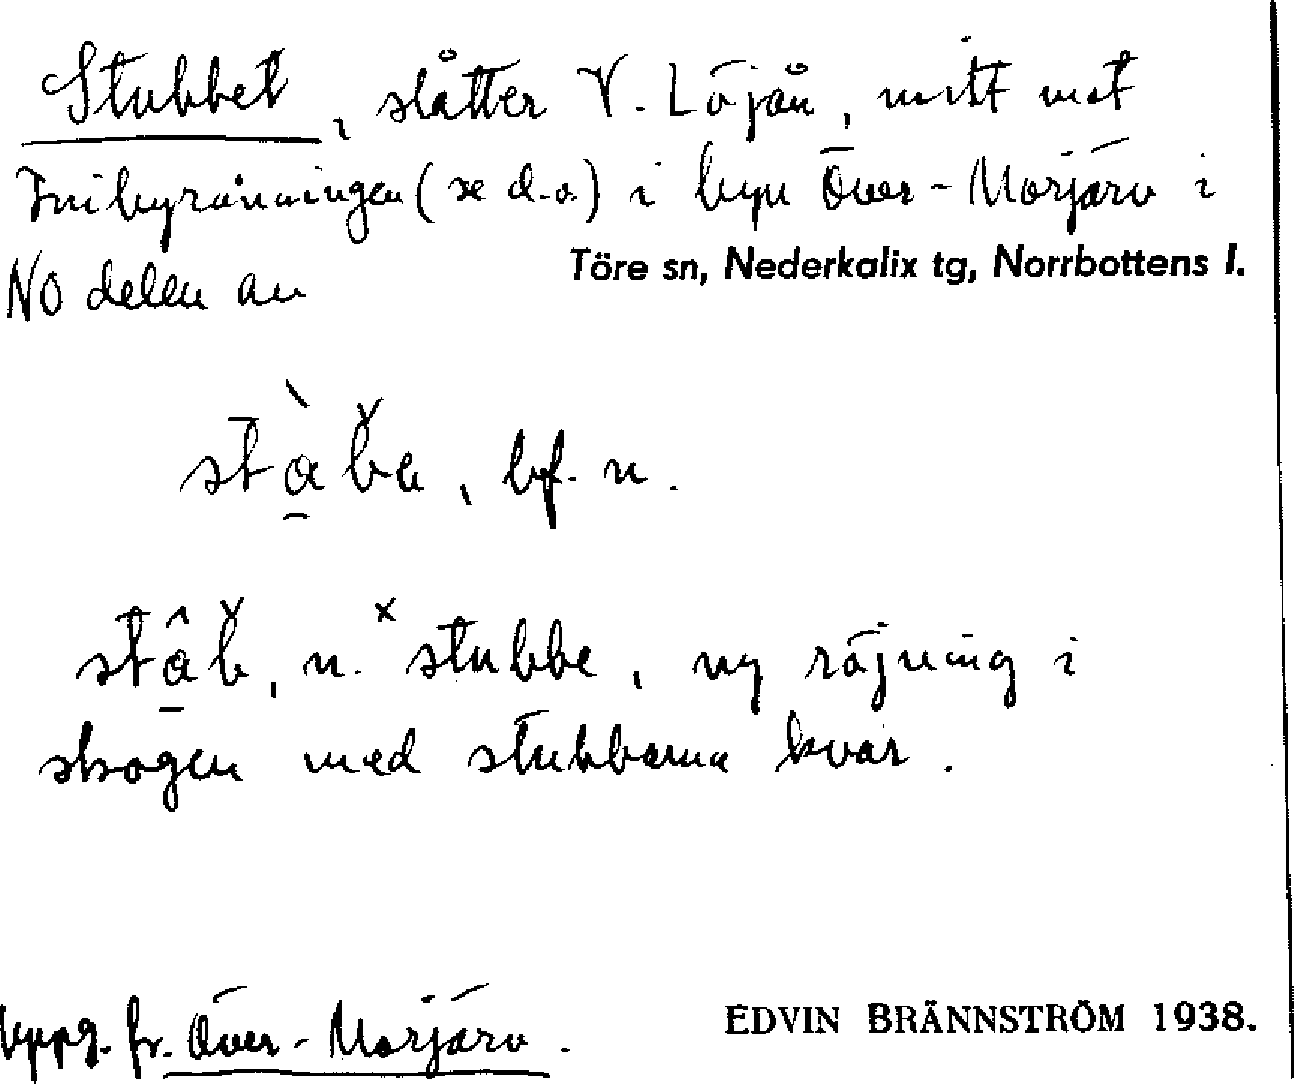 Stubbet, slåtter V. Löjån, mitt mot
(se d.o.) i byn Över-Morjärv i
NO delen av
Töre sn, Nederkalix tg, Norrbottens l.
bf. n.
n. ˣstubbe, ny röjning i
skogen med stubbarna kvar.
Uppg. fr. Över-Morjärv.
EDVIN BRÄNNSTRÖM 1938.